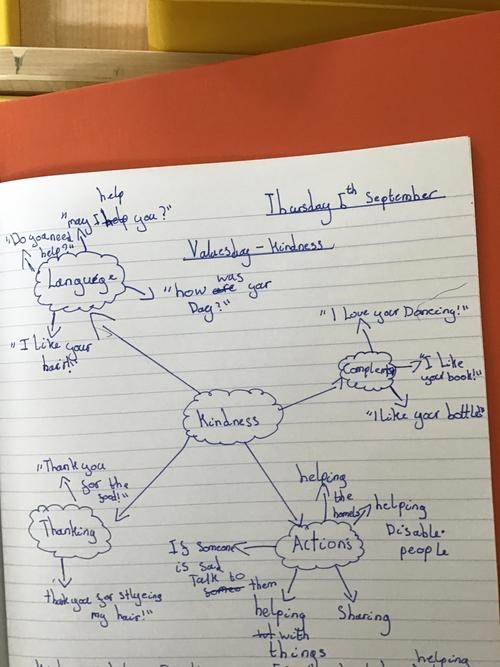 Thursday 6th September
Valuesday - Kindness
help
"may I help you?"
"Do you need
help?"
Language
"how was
are your
Day?"
"I Like your
hair!"
"I Love your Dancing!"
"I Like
your book!"
"I Like your bottle"
Kindness
"Thank you
for the
food!"
Thanking
thank you for
my hair!"
Actions
helping
the
helping
Disable
people
If someone
is sad
Talk to them
helping
with
things
Sharing
helping